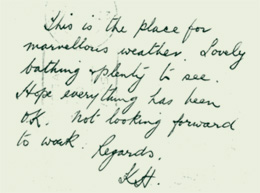 This is the place for
marvellous weather. Lovely
bathing & plenty to see.
Hope everything has been
OK. Not looking forward
to work. Regards.
K.H.